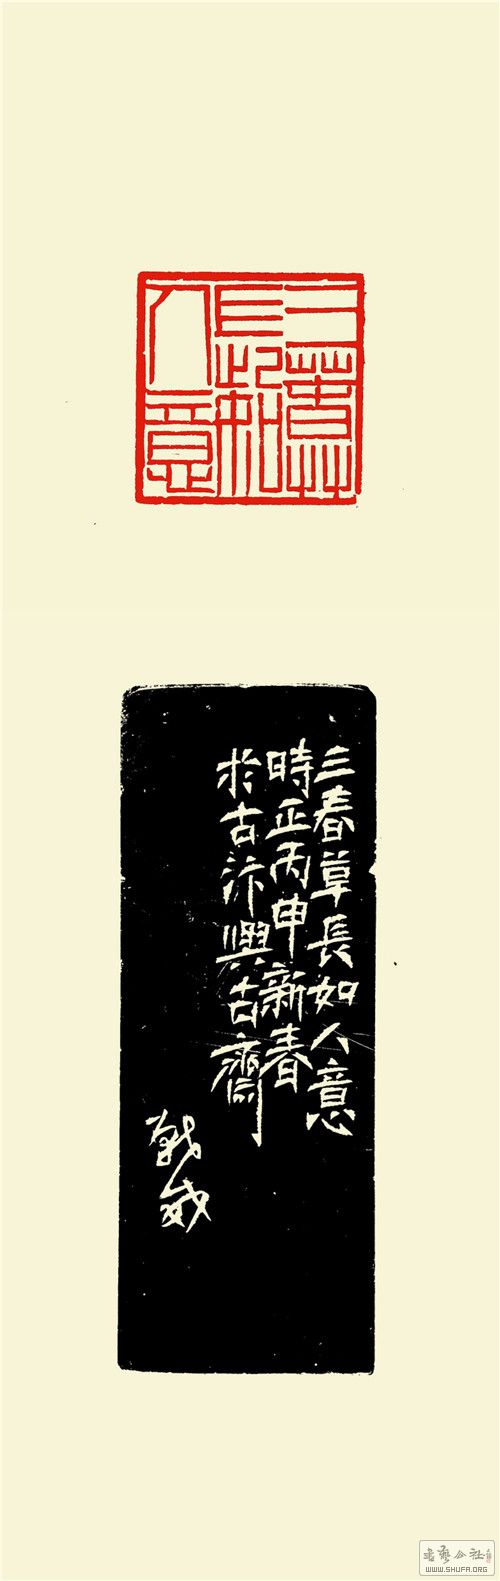 三春草
長如
人意
三春草長如人意
時正丙申新春
於古汴興古齋
書藝公社
WWW.SHUFA.ORG